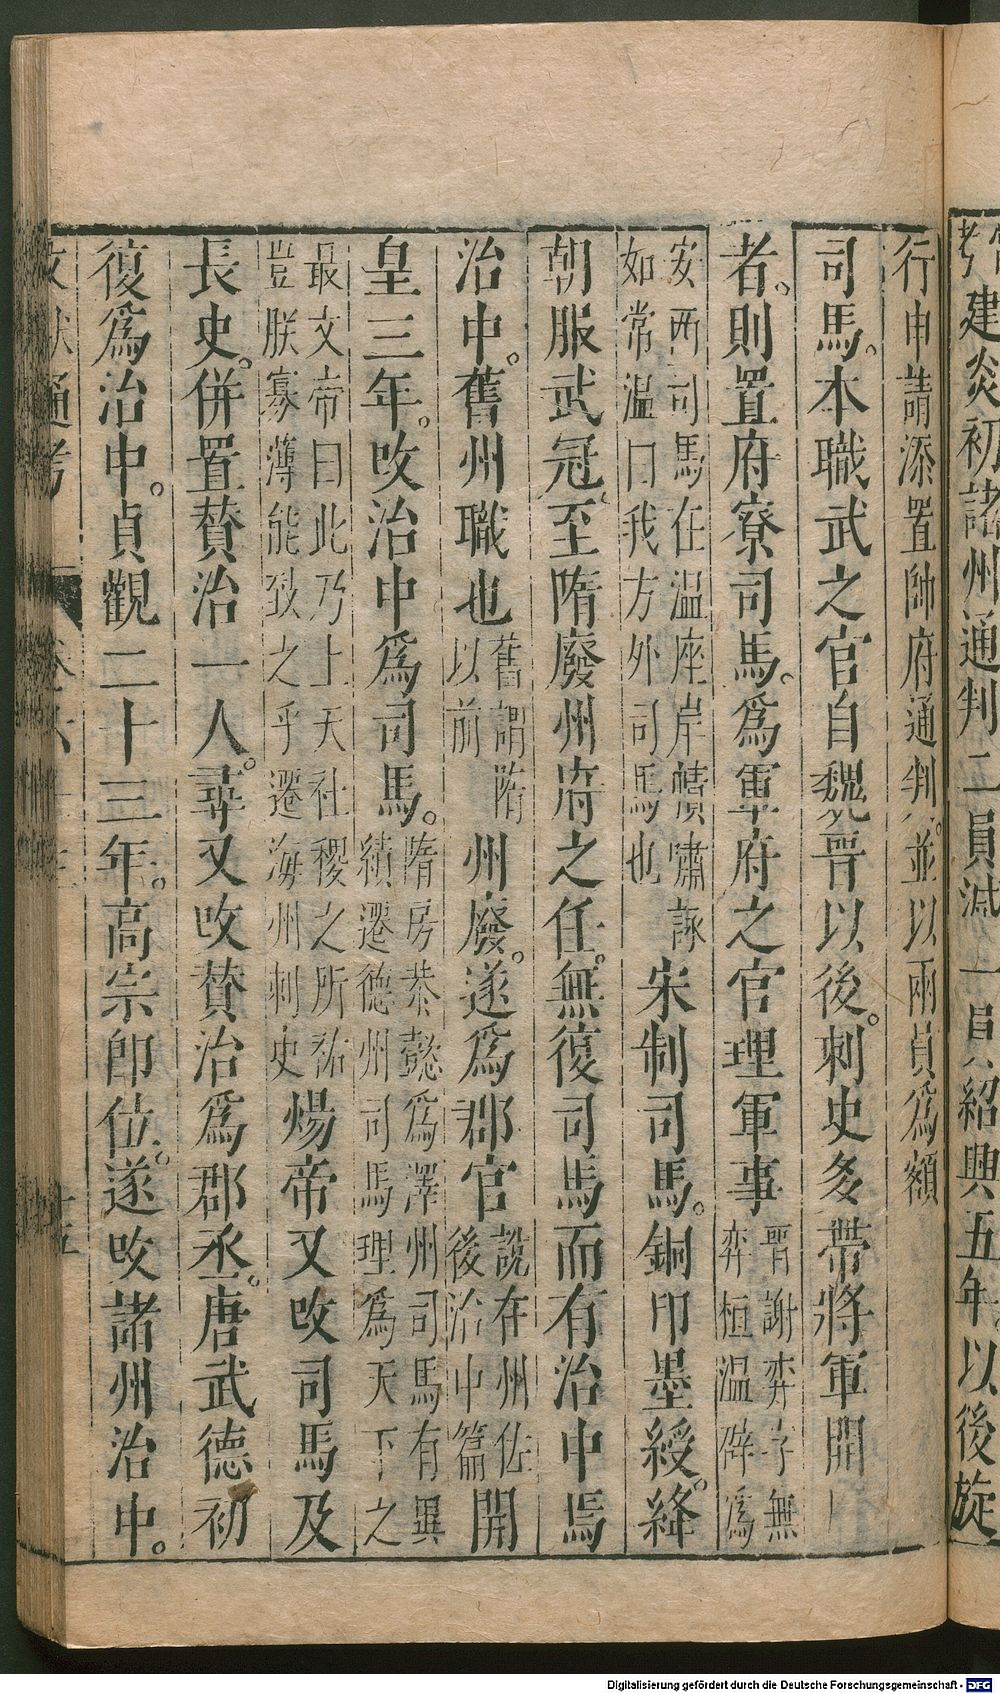 考建炎初諸州通判二員減一員紹興五年以後旋
行申請添置帥府通判並以兩員爲額
司馬本職武之官自魏晉以後刺史多帶將軍開
者則置府寮司馬爲軍府之官理軍事晉謝奕字無奕桓溫辟爲
安西司馬在溫座岸幘嘯詠如常溫曰我方外司馬也宋制司馬銅印墨綬絳
朝服武冠至隋廢州府之任無復司馬而有治中焉
治中舊州職也舊謂隋以前州廢遂爲郡官說在州佐後治中篇開
皇三年改治中爲司馬隋房恭懿爲澤州司馬有異績遷德州司馬理爲天下之
最文帝曰此乃上天社稷之所祐豈朕寡薄能致之乎遷海州刺史煬帝又改司馬及
長史併置贊治一人尋又改贊治爲郡丞唐武德初
復爲治中貞觀二十三年高宗卽位遂改諸州治中
文獻通考 卷六十三
十五
Digitalisierung gefördert durch die Deutsche Forschungsgemeinschaft - DFG